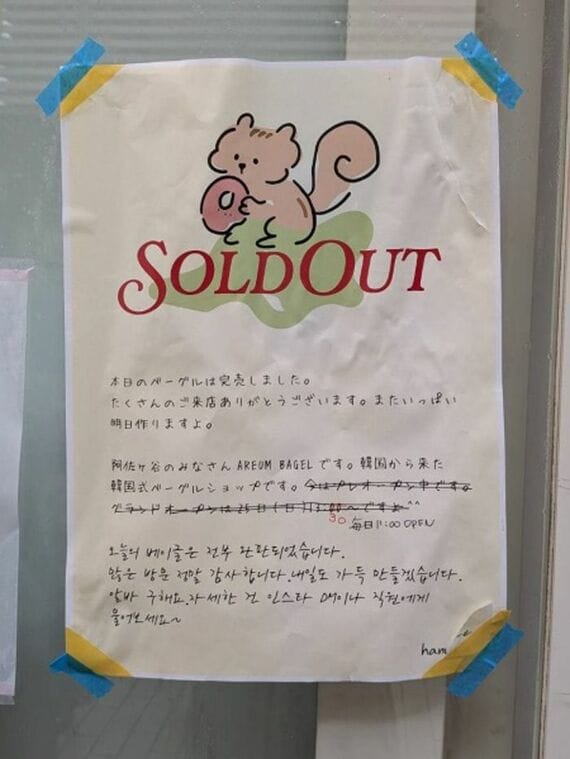 SOLD OUT
本日のベーグルは完売しました。
たくさんのご来店ありがとうございます。またいっぱい
明日作りますよ。
阿佐ヶ谷のみなさん AREUM BAGELです。韓国から来た
韓国式ベーグルショップです。今はプレオープン中です。
グランドオープンは25日(日)11:00〜ですよ^^
30
毎日11:00 OPEN
오늘의 베이글은 전부 완판되었습니다.
많은 방문 정말 감사합니다. 내일도 가득 만들겠습니다.
알바 구해요. 자세한 건 인스타 DM이나 직원에게
물어보세요~
ham